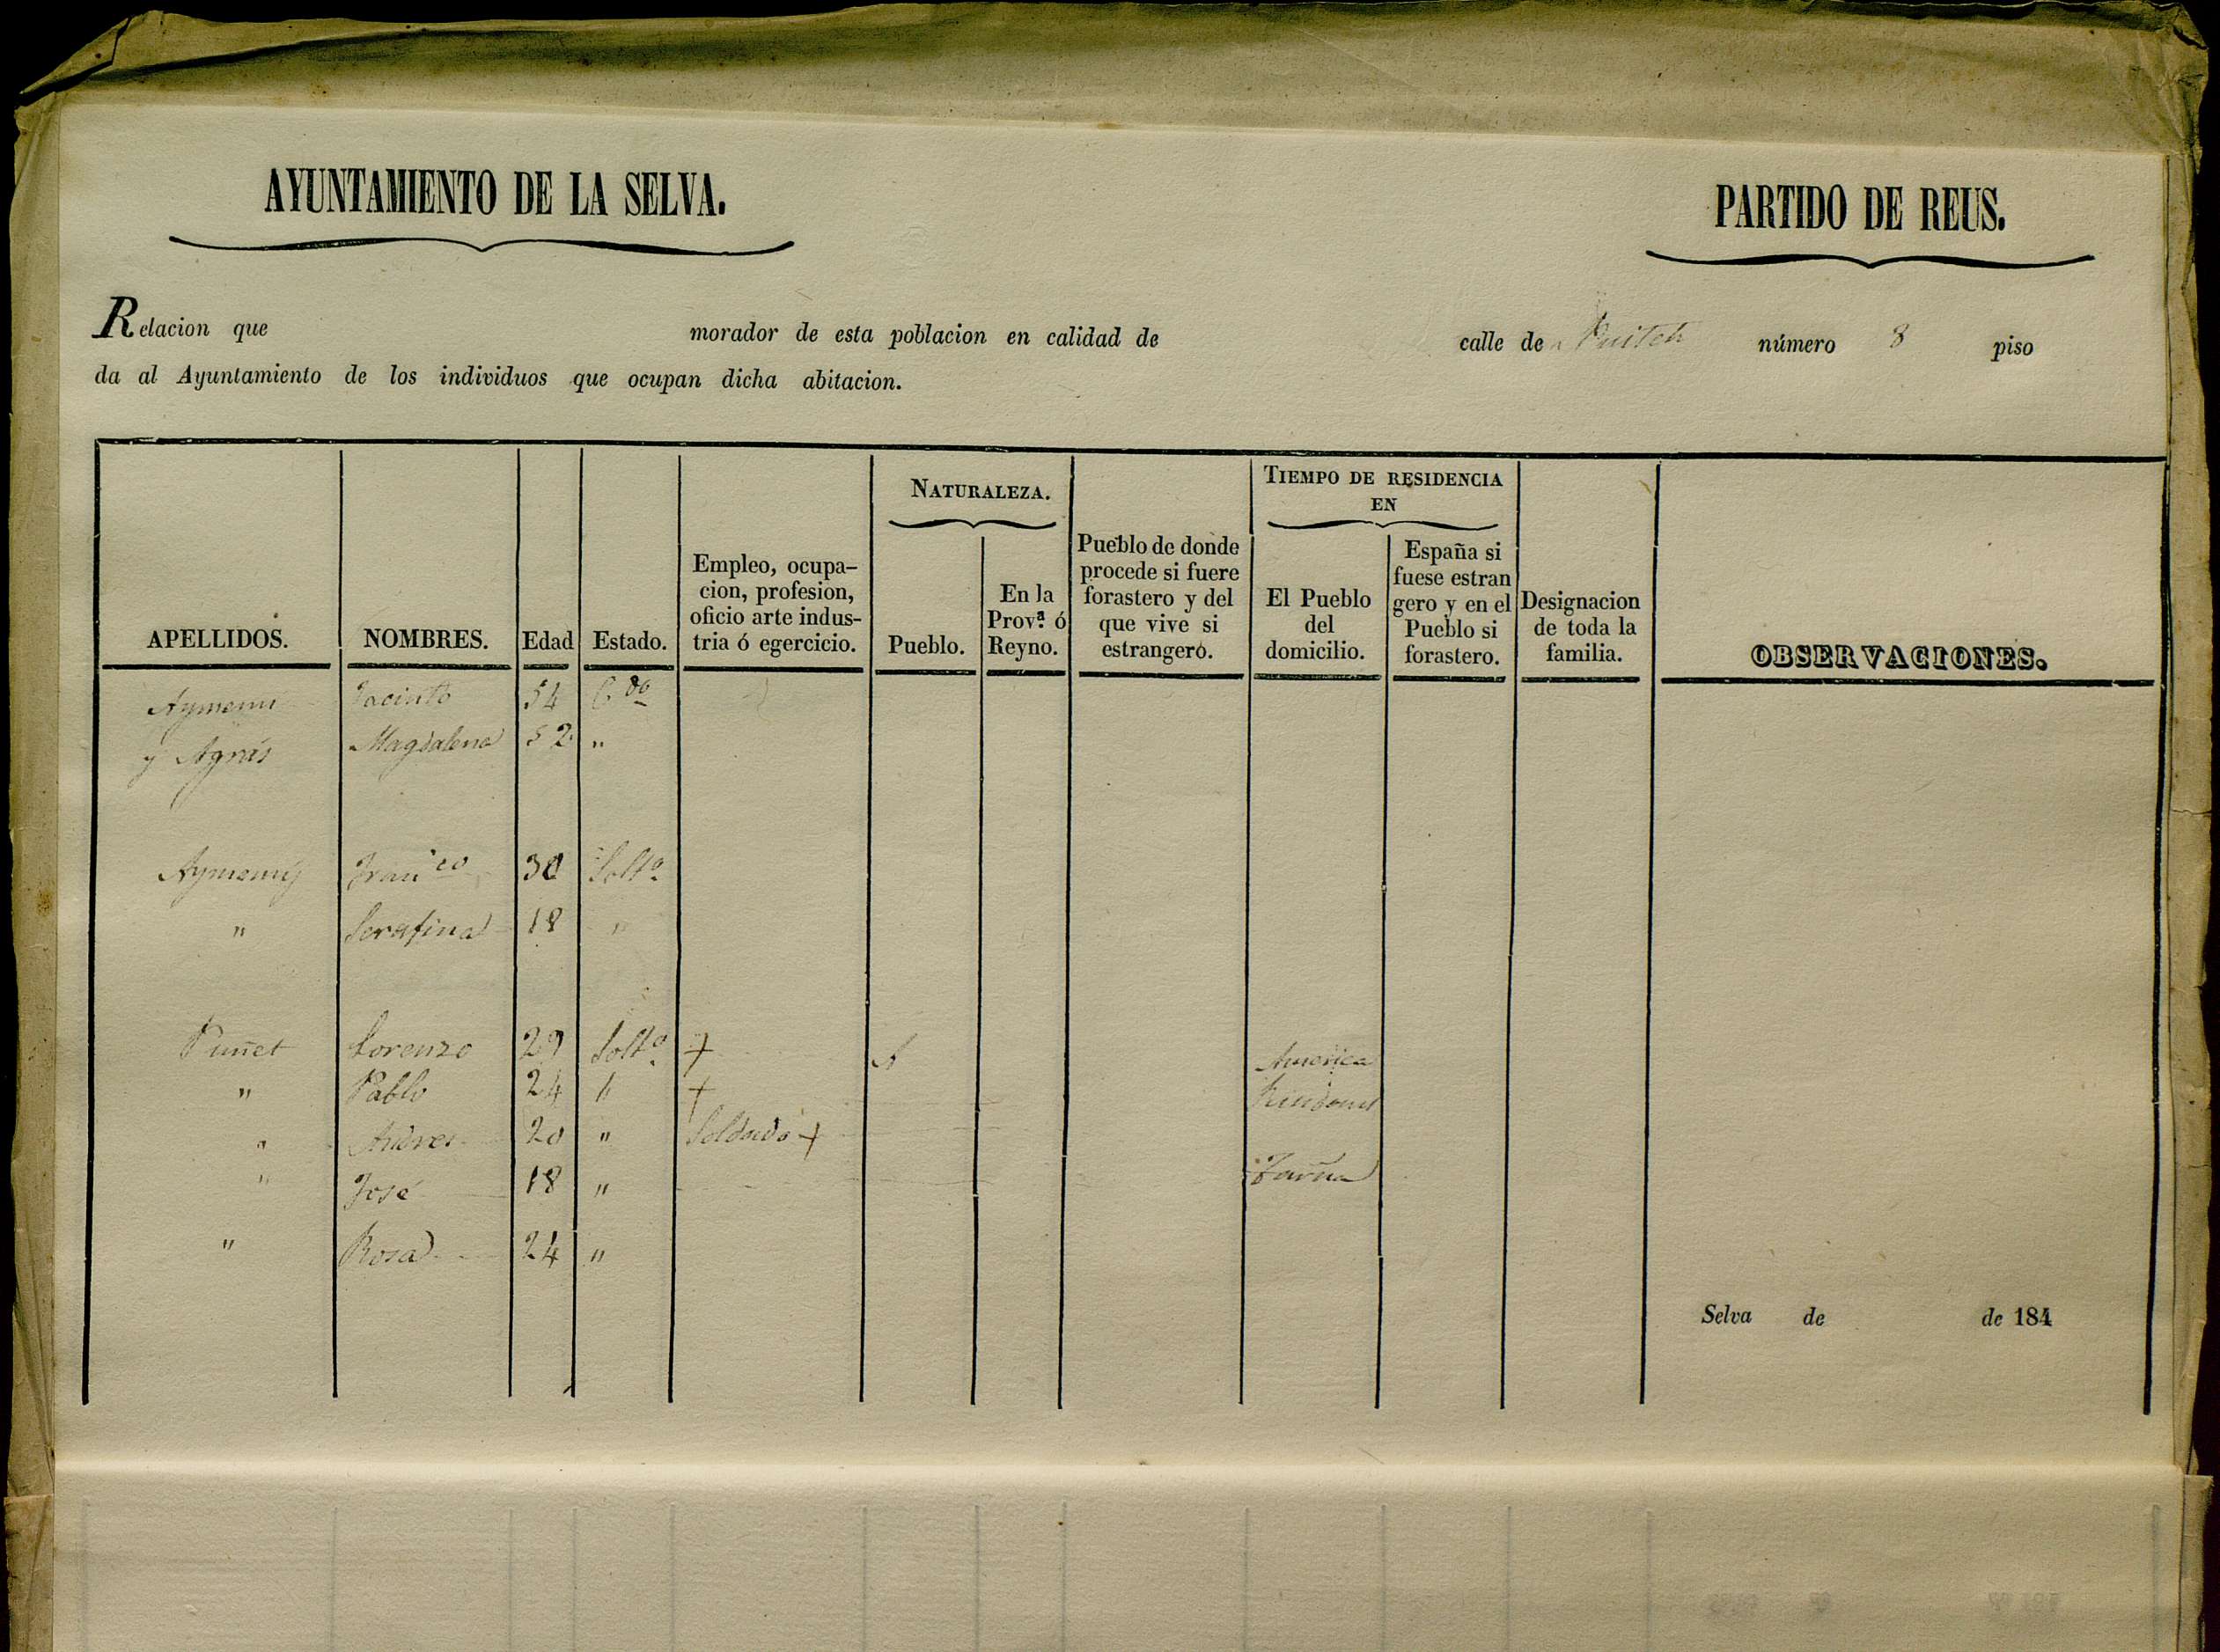 AYUNTAMIENTO DE LA SELVA.
PARTIDO DE REUS.
Relacion que morador de esta poblacion en calidad de calle de número 8 piso
da al Ayuntamiento de los individuos que ocupan dicha abitacion.
APELLIDOS.
NOMBRES.
Edad
Estado.
Empleo, ocupa-
cion, profesion,
oficio arte indus-
tria ó egercicio.
NATURALEZA.
Pueblo.
En la
Prov.ª ó
Reyno.
Pueblo de donde
procede si fuere
forastero y del
que vive si
estrangero.
TIEMPO DE RESIDENCIA
EN
El Pueblo
del
domicilio.
España si
fuese estran
gero y en el
Pueblo si
forastero.
Designacion
de toda la
familia.
OBSERVACIONES.
Aymemi Jacinto 54 C.do
y Magdalena 52 "
Aymemi Fran.co 30 Solt.o
" Serafina 18 "
Puñet Lorenzo 29 Solt.o + America
" Pablo 24 " +
" Andres 20 " Soldado +
" José 18 "
" Rosa 24 "
Selva de de 184